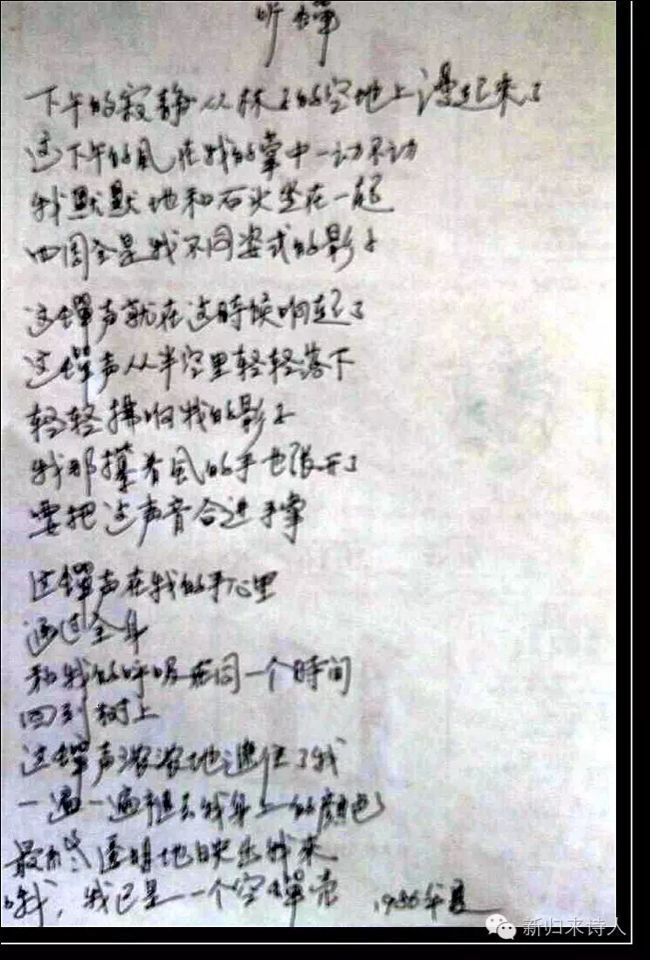 听蝉
下午的寂静从林子的空地上漫起来了
这下午的风在我的掌中一动不动
我默默地和石头坐在一起
四周全是我不同姿式的影子
这蝉声就在这時候响起了
这蝉声从半空里轻轻落下
轻轻拂响我的影子
我那摸着风的手也张开了
要把这声音合进手掌
这蝉声在我的手心里
通过全身
和我的呼吸在同一个時间
回到树上
这蝉声浓浓地遮住了我
一遍一遍褪去我身上的颜色
最终透明地映出我来
哦，我已是一个空蝉壳 1986年夏
新归来诗人